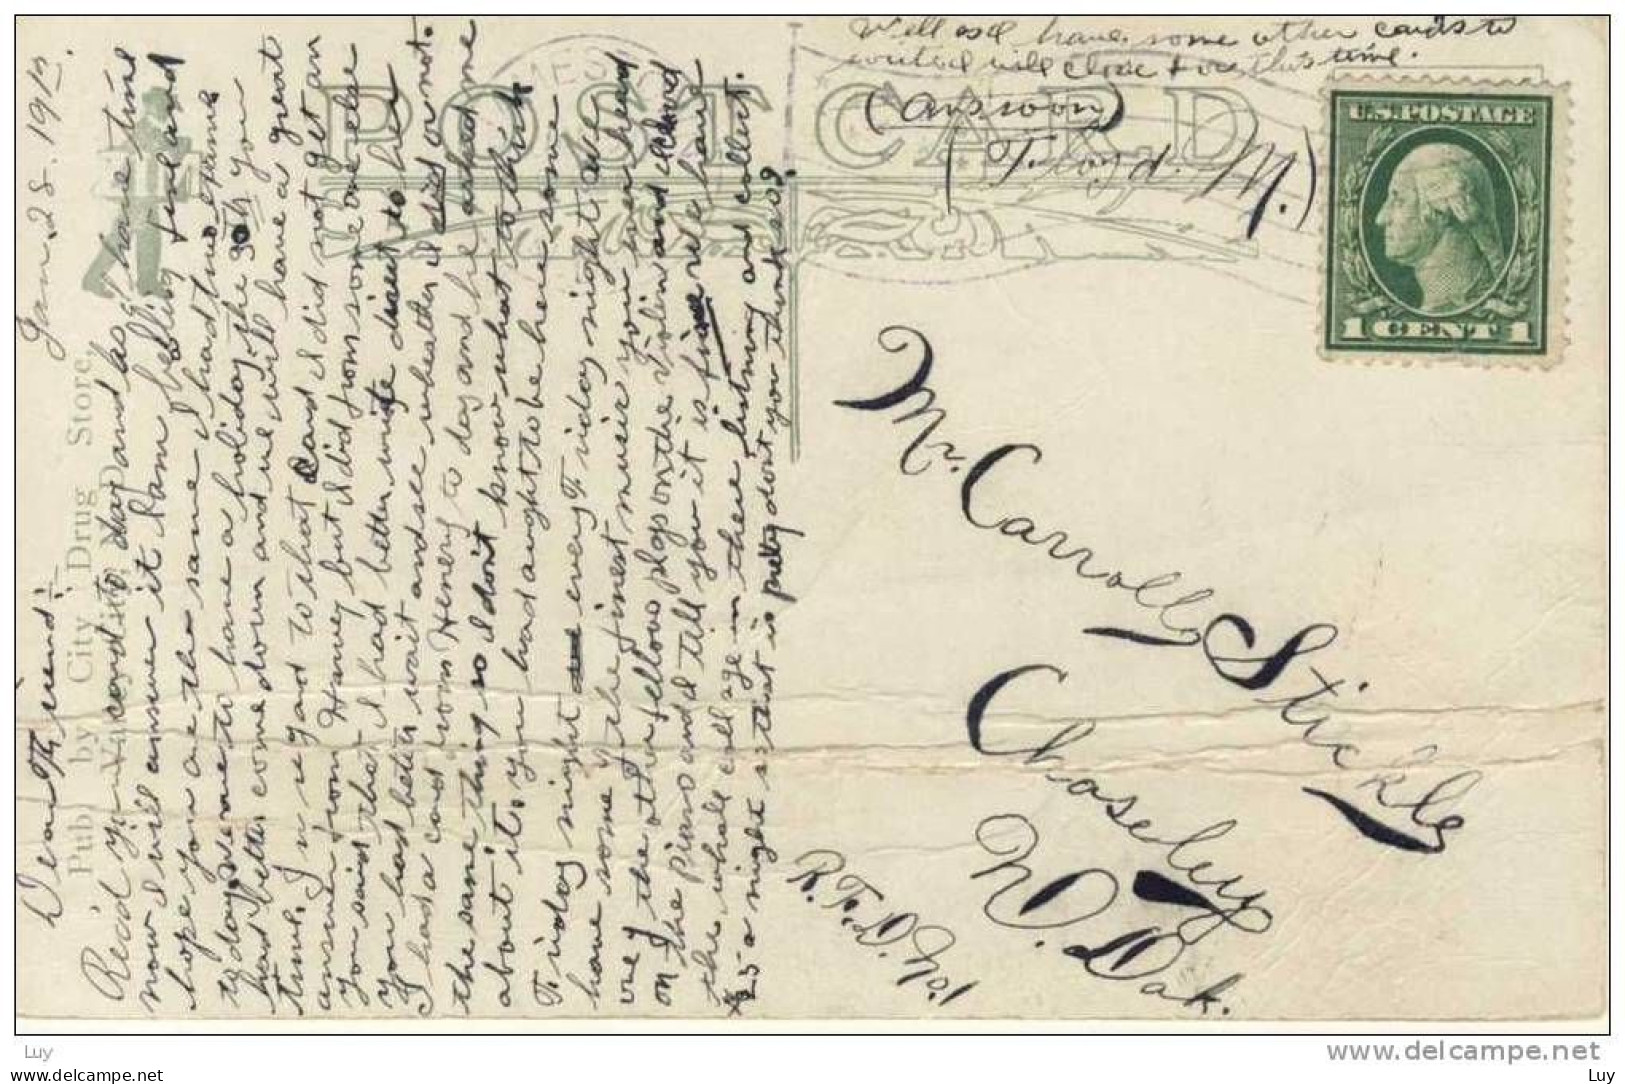 Jan. 28. 191
Dear Friend:-
Rec'd your card to day and as I have time
now I will answer it I am feeling fine and
hope you are the same I had two exams
to day were to have a holiday the 30th you
had better come down and we will have a great
time. In regard to that card I did not get an
answer from Harvey but I did from some one else
you said that I had better write direct to her
you had better wait and see wheather I did or not.
I had a card from Henery to day and he asked me
the same thing so I don't know what to think
about it. you had aught to be here some
Friday night every Friday night
have some of the finest music you ever heard
of the other fellows plays on the Violin and
on the Piano and I tell you it is fine we have
the whole collage in there listning and collect.
a night so that is pretty dont you think so?
Publ by City Drug Store,
POST CARD
Well as I have some other cards to
write I will close for this time.
(ans soon)
(Floyd. M.)
U.S. POSTAGE
1 CENT 1
Mr. Carroll Stickle
Chaseley
N. Dak.
R.F.D. No. 1
Luy
www.delcampe.net
Luy